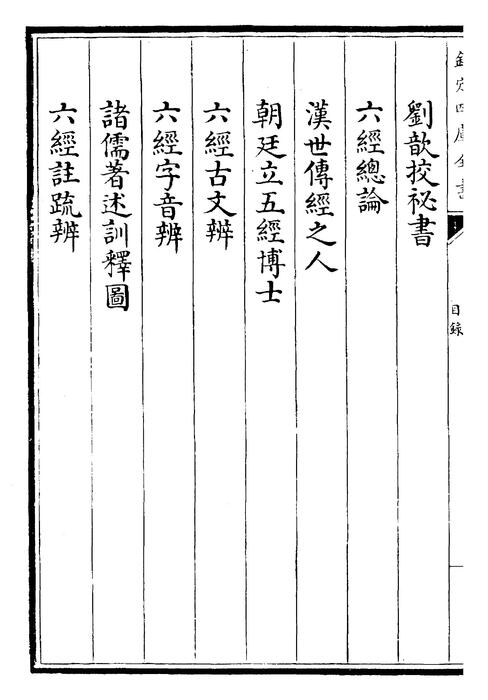 欽定四庫全書
目錄
劉歆挍祕書
六經總論
漢世傳經之人
朝廷立五經博士
六經古文辨
六經字音辨
諸儒著述訓釋圖
六經註䟽辨